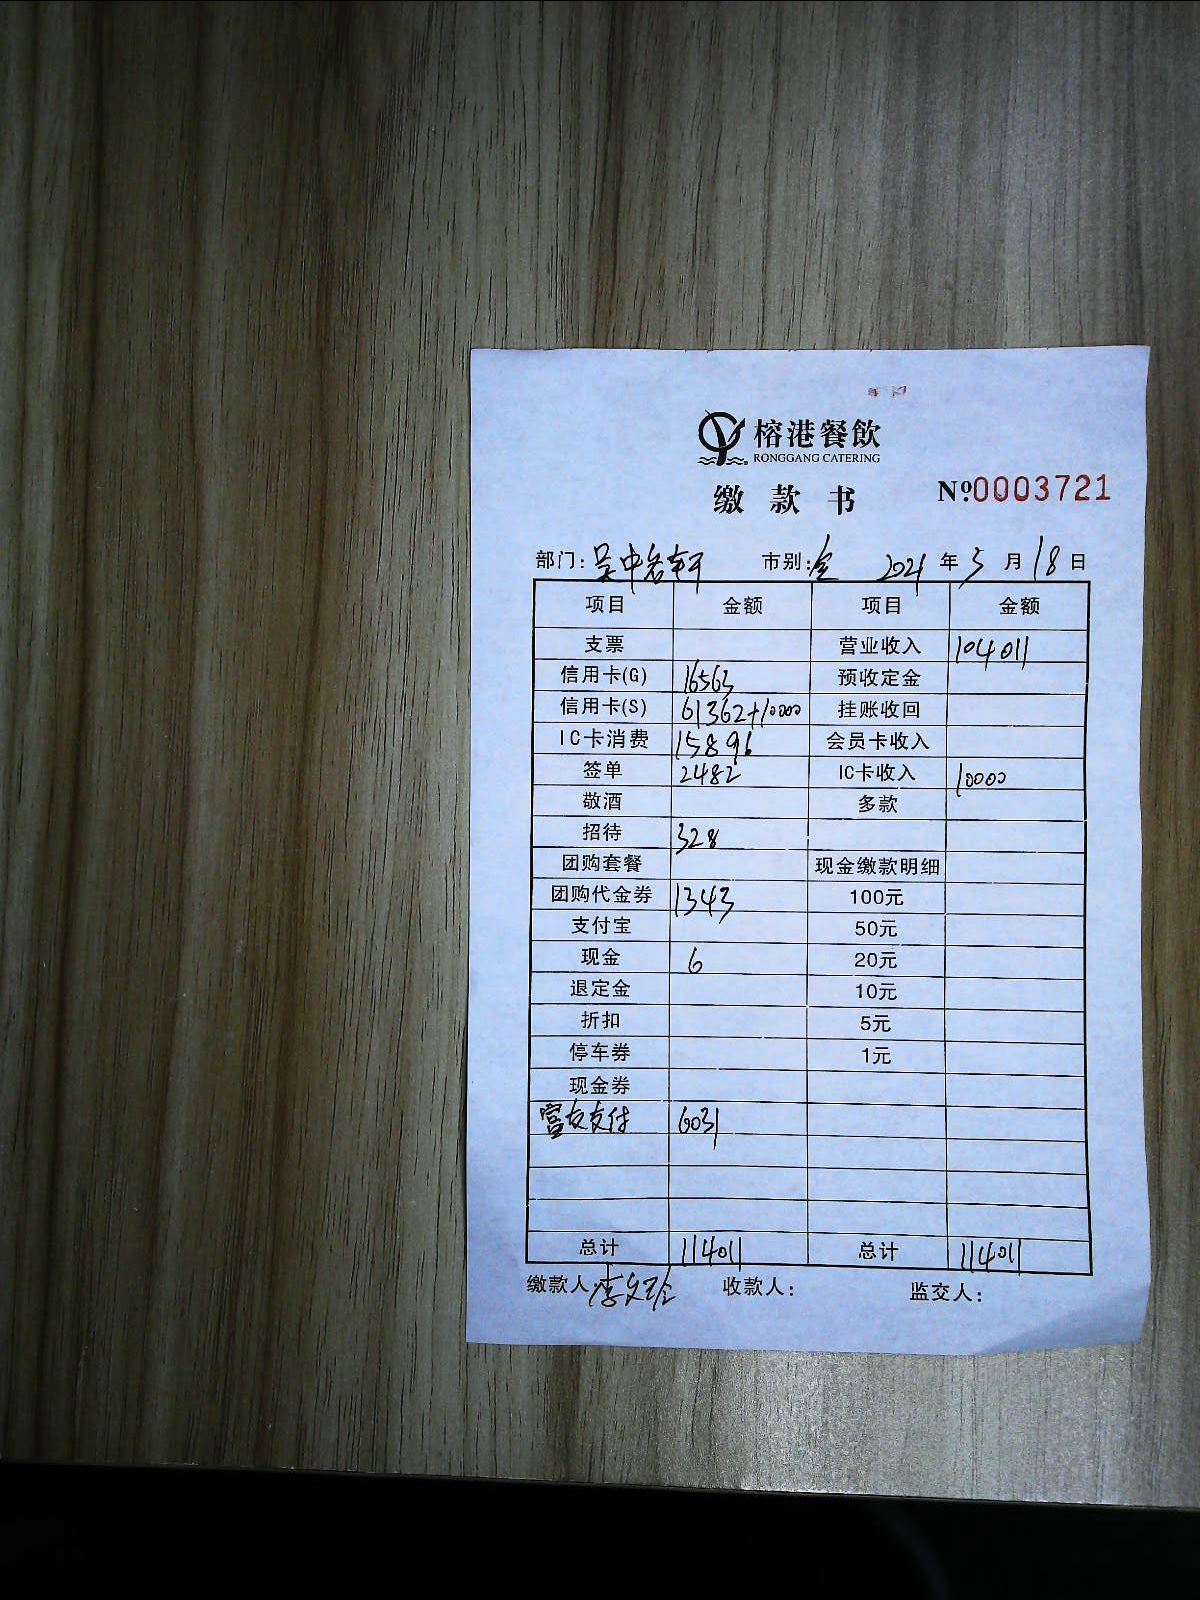 榕港餐飲
RONGGANG CATERING
缴款书 №0003721
部门: 吴中名轩 市别: 全 2021年5月18日
项目 金额 项目 金额
支票 营业收入 104011
信用卡(G) 16563 预收定金
信用卡(S) 61362+10000 挂账收回
IC卡消费 15896 会员卡收入
签单 2482 IC卡收入 10000
敬酒 多款
招待 328
团购套餐 现金缴款明细
团购代金券 1343 100元
支付宝 50元
现金 6 20元
退定金 10元
折扣 5元
停车券 1元
现金券
富友支付 6031
总计 114011 总计 114011
缴款人: 李文玲 收款人: 监交人: